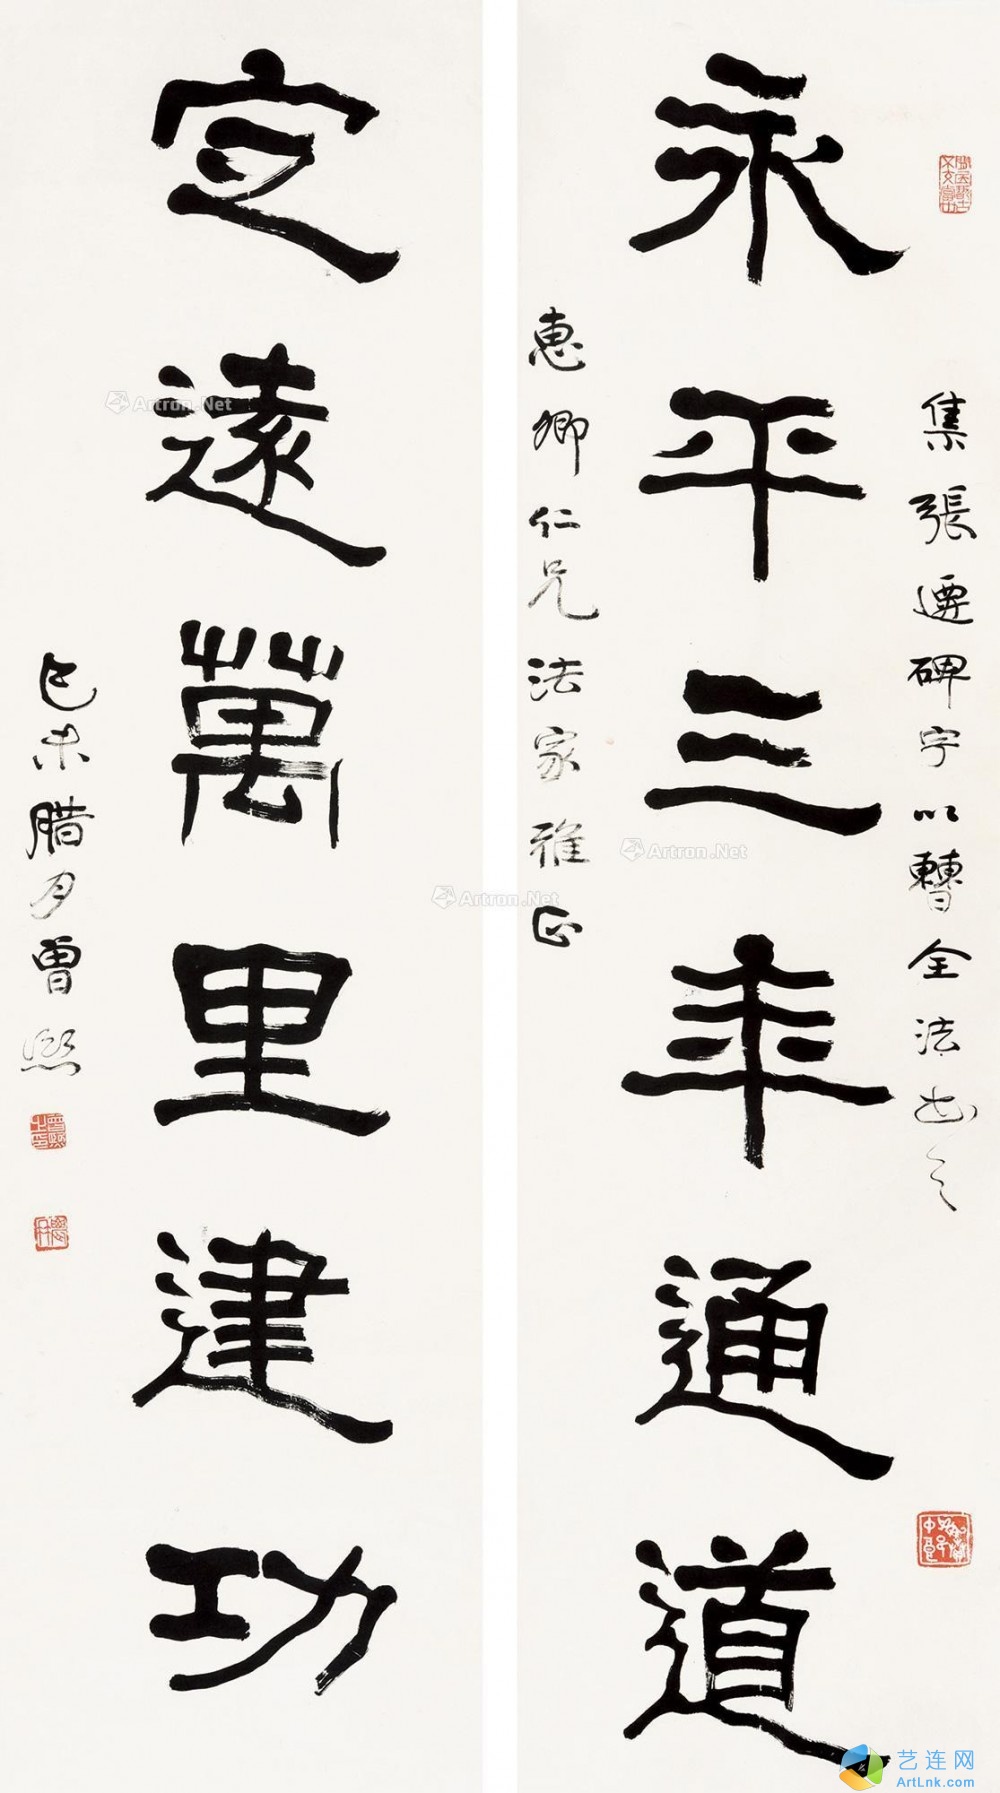 集張遷碑字以轉全法書之
永平三年通道
惠卿仁兄法家雅正
定遠萬里建功
己未腊月曾熙
Artron.Net
Artron.Net
Artron.Net
艺连网
ArtLnk.com